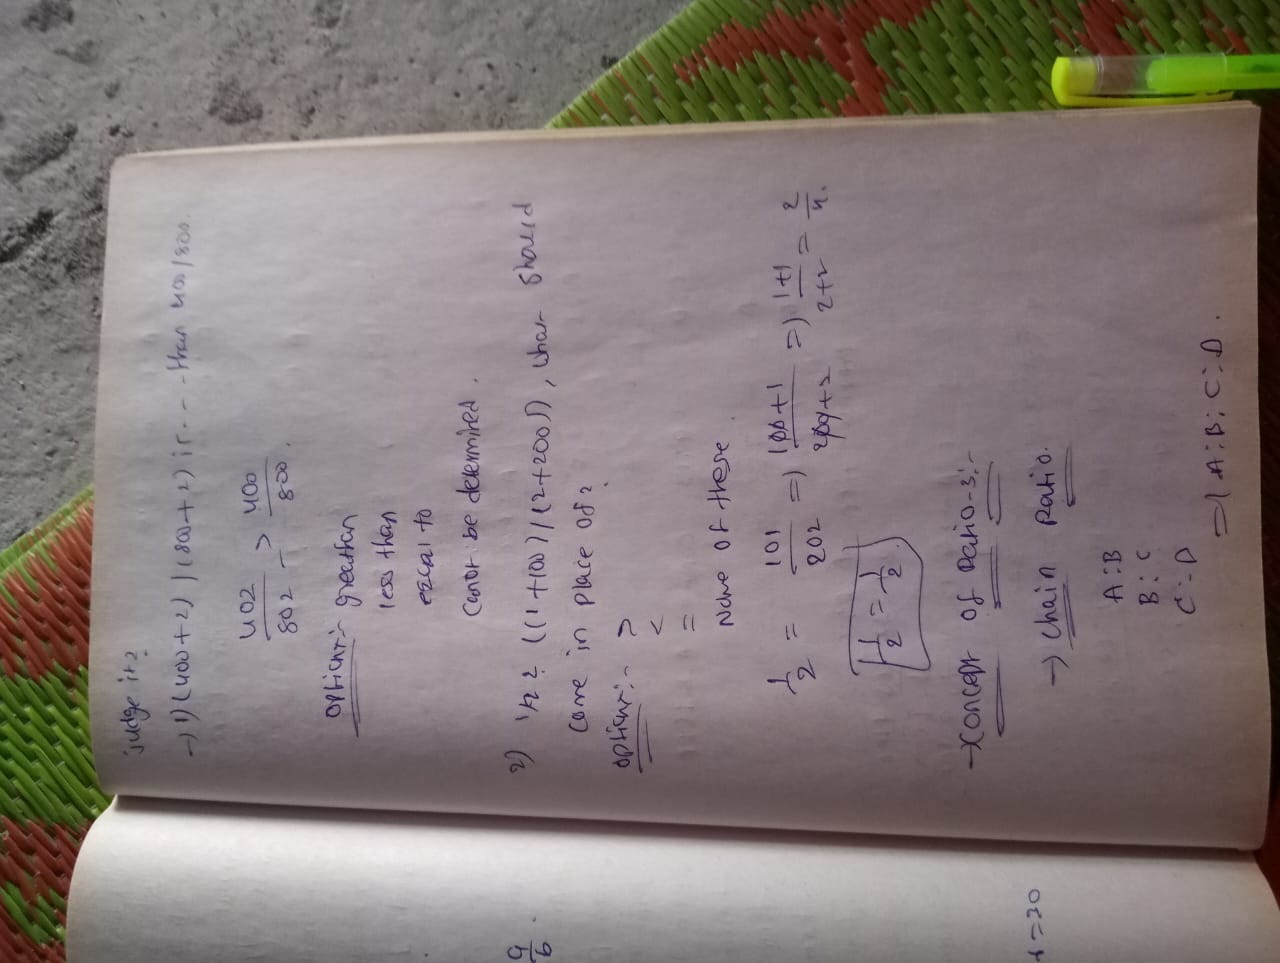 Judge it?
→ 1) (400+2) / (800+2) is - - - than 400/800.
402/802 > 400/800.
Options:- greathan
less than
eqcal to
Canot be determined.
2) '1/2 ? ((1+100)/(2+200)), what should
come in place of ?
options:- >
<
=
None of these.
1/2 = 101/202 => 100+1/200+2 => 1+1/2+2 = 2/4.
1/2 = 1/2.
→ Concept of Ratio-3:-
→ Chain Ratio.
A:B
B:C
C:D
=> A:B:C:D.
a/b.
=30